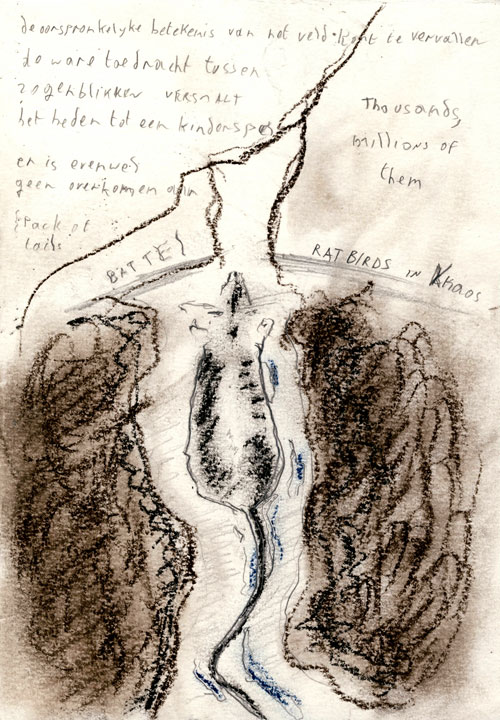 de oorspronkelyke betekenis van het veld komt te vervallen
de ware toedracht tussen
ogenblikken VERSMALT
het heden tot een
er is evenwel
geen overkomen aan
pack of
tails
Thousands,
millions of
them
BATTEL
RATBIRDS IN Khaos